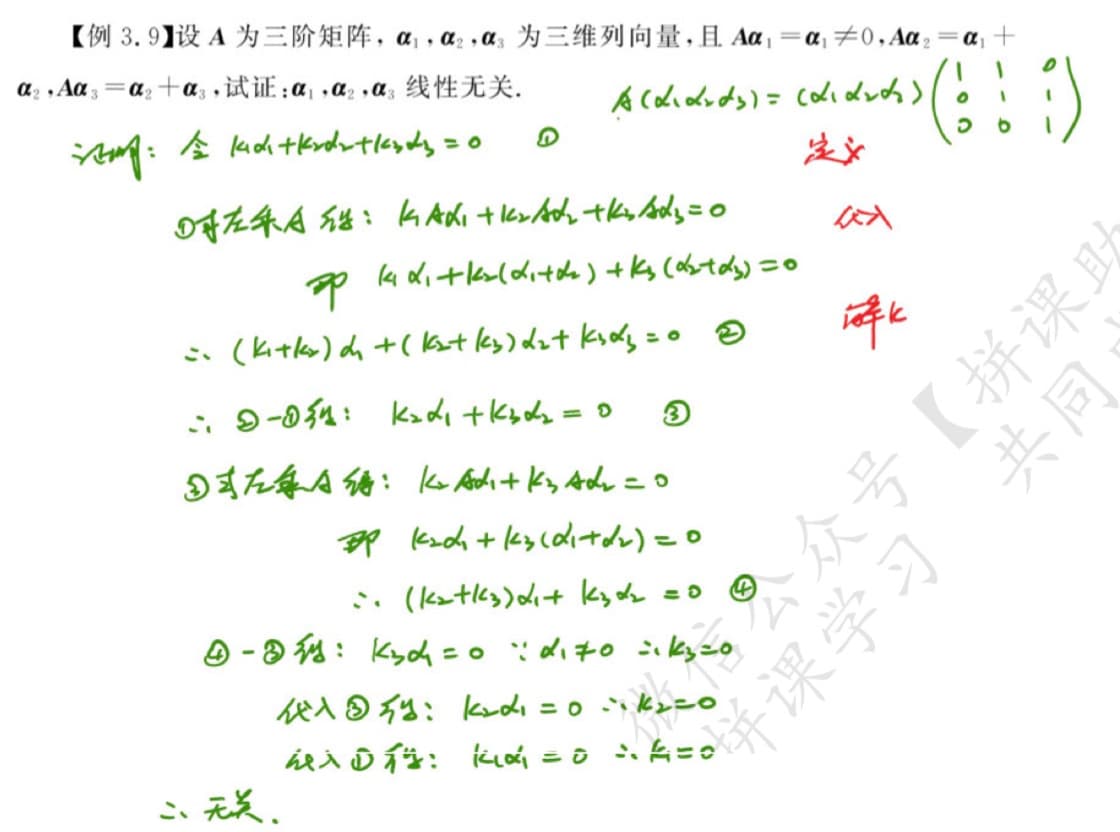 【例 3.9】设 A 为三阶矩阵，α₁，α₂，α₃ 为三维列向量，且 Aα₁=α₁≠0，Aα₂=α₁+
α₂，Aα₃=α₂+α₃，试证：α₁，α₂，α₃ 线性无关.
A(α₁α₂α₃)=(α₁α₂α₃)(1 1 0
0 1 1
0 0 1)
证明：令 k₁α₁+k₂α₂+k₃α₃=0 ①
定义
①式左乘A得：k₁Aα₁+k₂Aα₂+k₃Aα₃=0
代入
即 k₁α₁+k₂(α₁+α₂)+k₃(α₂+α₃)=0
解k
∴ (k₁+k₂)α₁+(k₂+k₃)α₂+k₃α₃=0 ②
∴ ②-①得：k₂α₁+k₃α₂=0 ③
③式左乘A得：k₂Aα₁+k₃Aα₂=0
即 k₂α₁+k₃(α₁+α₂)=0
∴ (k₂+k₃)α₁+k₃α₂=0 ④
④-③得：k₃α₁=0 ∵α₁≠0 ∴k₃=0
代入③得：k₂α₁=0 ∴k₂=0
代入①得：k₁α₁=0 ∴k₁=0
∴ 无关.
微信公众号【拼课助
拼课学习 共同